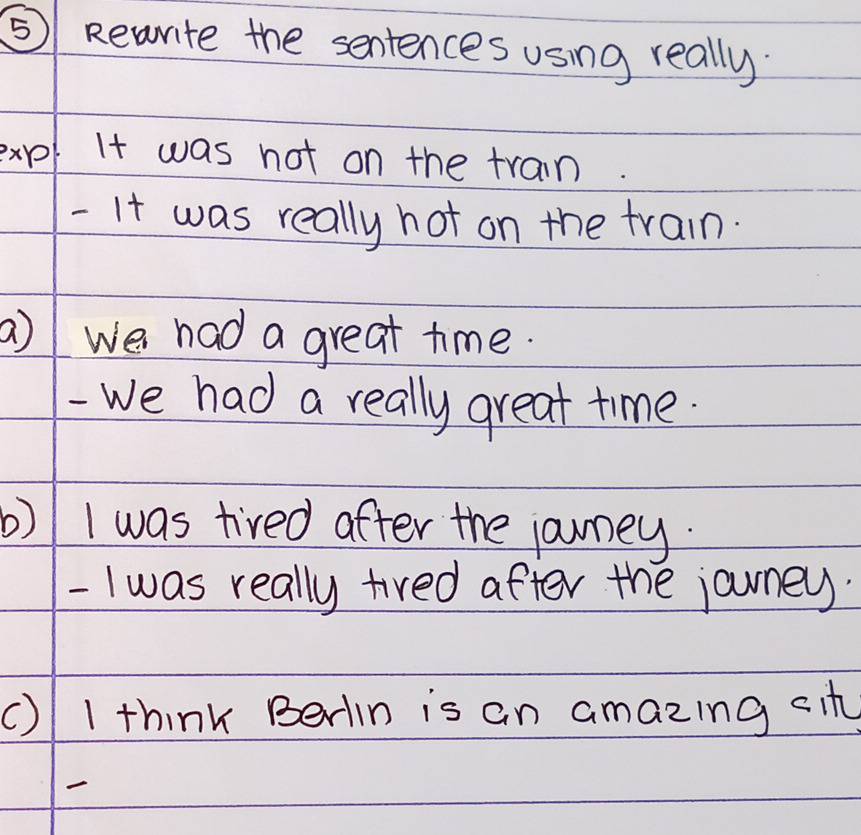 5 Rewrite the sentences using really.
exp. It was hot on the train.
- It was really hot on the train.
a) We had a great time.
- We had a really great time.
b) I was tired after the journey.
- I was really tired after the journey.
c) I think Berlin is an amazing city
-